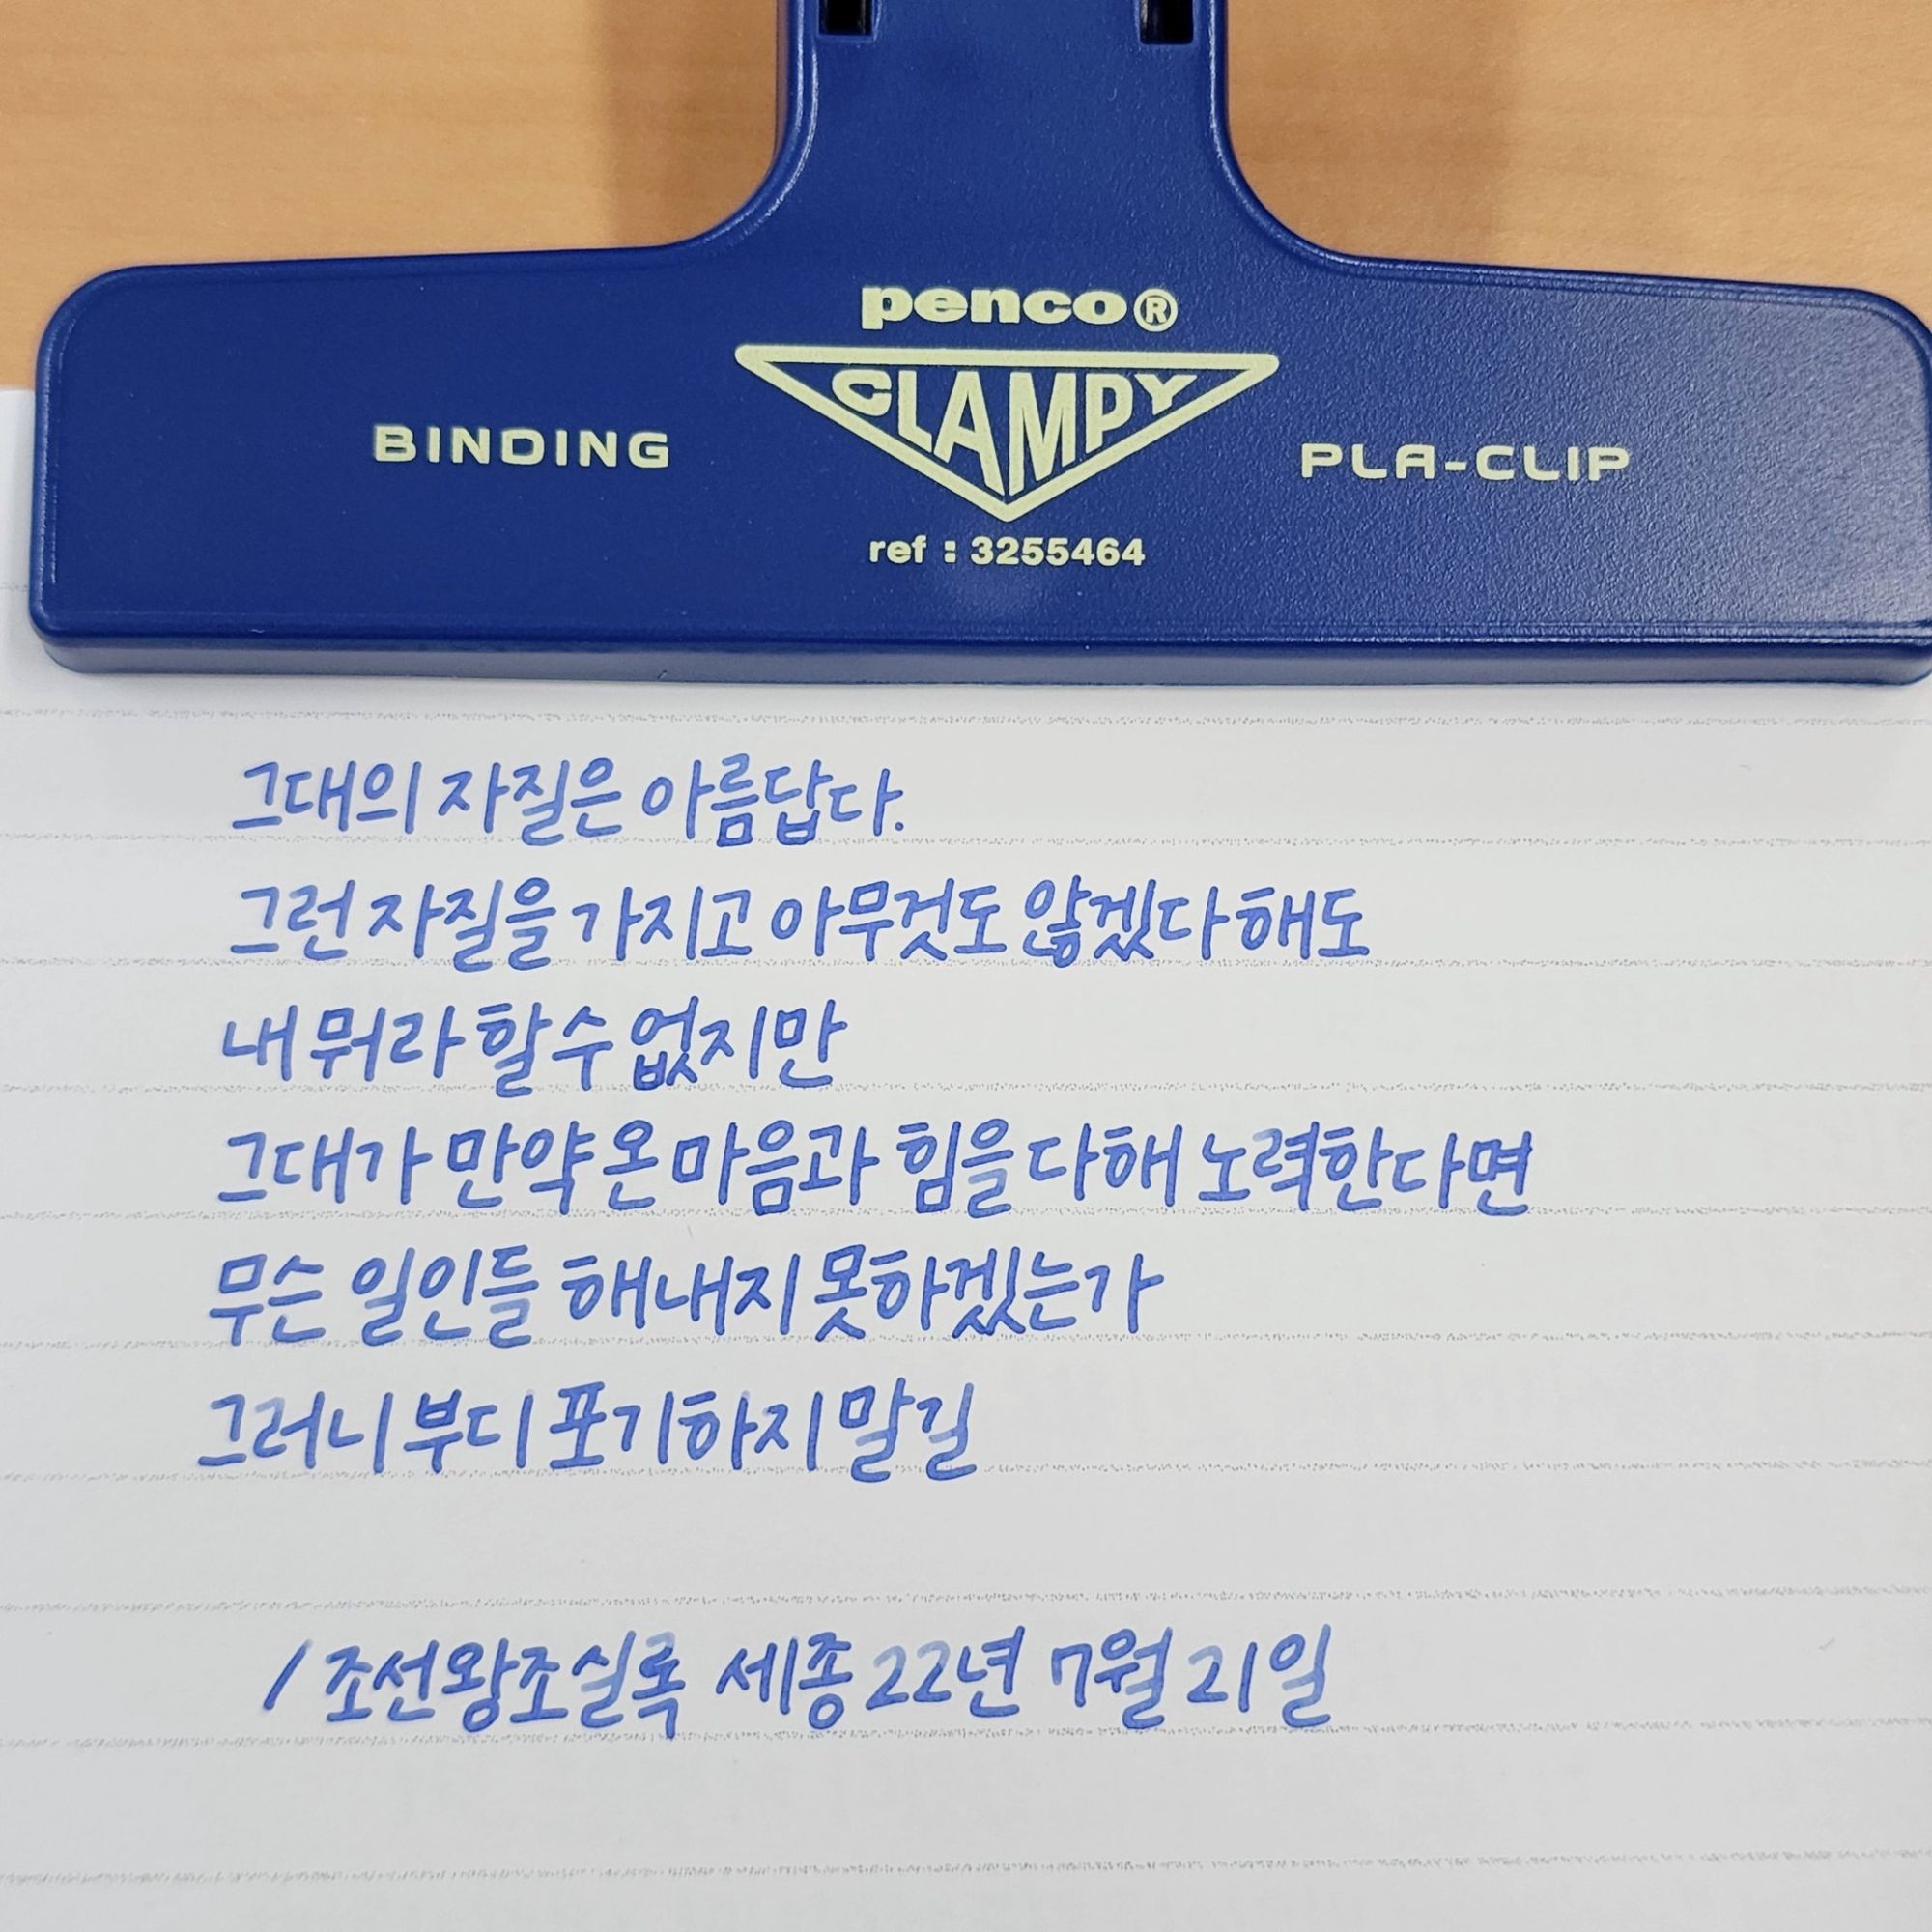 penco®
CLAMPY
BINDING
PLA-CLIP
ref : 3255464
그대의 자질은 아름답다.
그런 자질을 가지고 아무것도 않겠다 해도
내 뭐라 할 수 없지만
그대가 만약 온 마음과 힘을 다해 노력한다면
무슨 일인들 해내지 못하겠는가
그러니 부디 포기하지 말길
/ 조선왕조실록 세종 22년 7월 21일